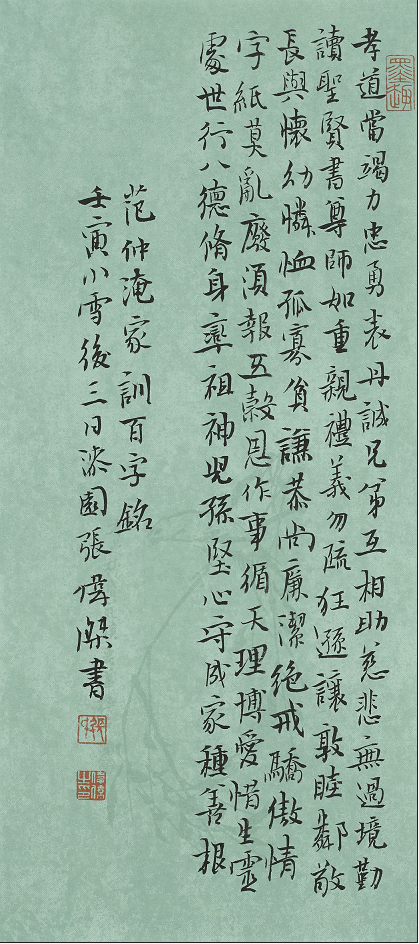 孝道當竭力忠勇表丹誠兄弟互相助慈悲無過境勤
讀聖賢書尊師如重親禮義勿疏狂遜讓敦睦鄰敬
長與懷幼憐恤孤寡貧謙恭尚廉潔絕戒驕傲情
字紙莫亂廢須報五穀恩作事循天理博愛惜生靈
處世行八德脩身率祖神兒孫堅心守成家種善根
范仲淹家訓百字銘
壬寅小雪後三日漆園張偉傑書